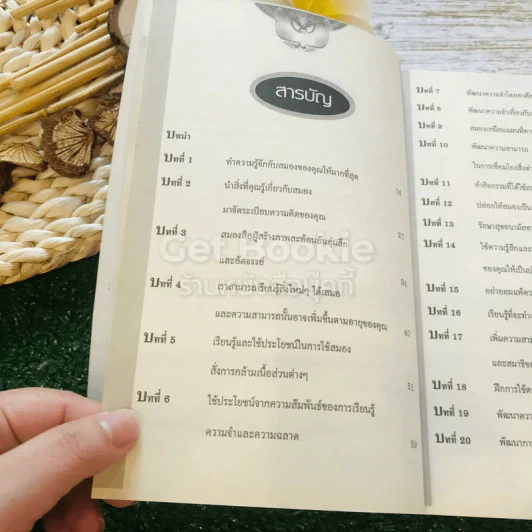 สารบัญ
บทนำ
บทที่ 1 ทำความรู้จักกับสมองของคุณให้มากที่สุด
บทที่ 2 นำสิ่งที่คุณรู้เกี่ยวกับสมอง
มาจัดระเบียบความคิดของคุณ
บทที่ 3 สมองคือผู้สร้างภาพสะท้อนอันลุ่มลึก
และอัศจรรย์
บทที่ 4 เราสามารถเรียนรู้สิ่งใหม่ๆ ได้เสมอ
และความสามารถนั้นอาจเพิ่มขึ้นตามอายุของคุณ 40
บทที่ 5 เรียนรู้และใช้ประโยชน์ในการใช้สมอง
สั่งการกล้ามเนื้อส่วนต่างๆ 51
บทที่ 6 ใช้ประโยชน์จากความสัมพันธ์ของการเรียนรู้
ความจำและความฉลาด 59
Get Bookie
ร้านหนังสือบุ๊กกี้
บทที่ 7 พัฒนาความจำโดยอาศัย
บทที่ 8 พัฒนาความจำเกี่ยวกับ
บทที่ 9 สมองเหมือนแผนที่ทา
บทที่ 10 พัฒนาความสามารถ
ในการเชื่อมโยงสิ่งต่า
บทที่ 11 ทำกิจกรรมที่ได้ใช้ส
บทที่ 12 ปล่อยให้สมองเป็น
บทที่ 13 รักษาสุขอนามัยทา
บทที่ 14 ใช้ความรู้สึกและ
ของคุณให้เป็นป
บทที่ 15 อย่ายอมแพ้คว
บทที่ 16 เรียนรู้ที่จะทำ
บทที่ 17 เพิ่มความสาม
และสมาธิขอ
บทที่ 18 ฝึกการใช้ค
บทที่ 19 พัฒนาควา
บทที่ 20 พัฒนากา